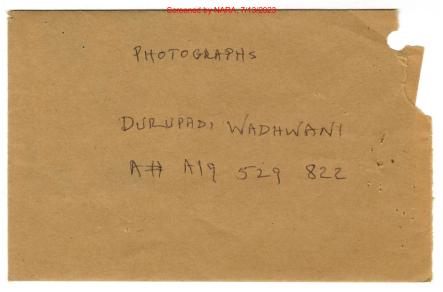 Screened by NARA, 7/13/2023
PHOTOGRAPHS
DURUPADI WADHWANI
A# A19 529 822